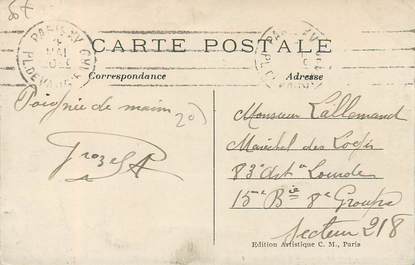 CARTE POSTALE
Correspondance
Adresse
Poignée de main
Monsieur Lallemand
Maréchal des Logis
83e Art. Lourde
15me Bie 8e Groupe
Secteur 218
Edition Artistique C. M., Paris